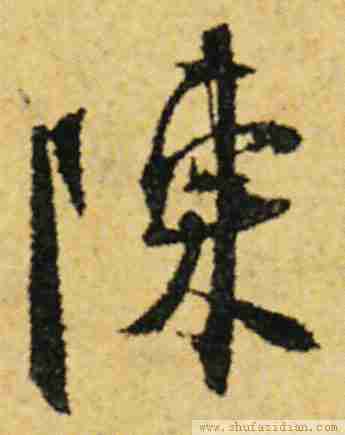 陳
www.shufazidian.com